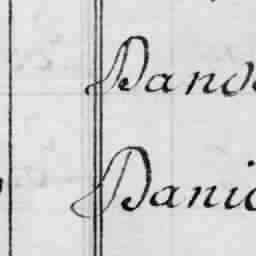 Dando
Danie